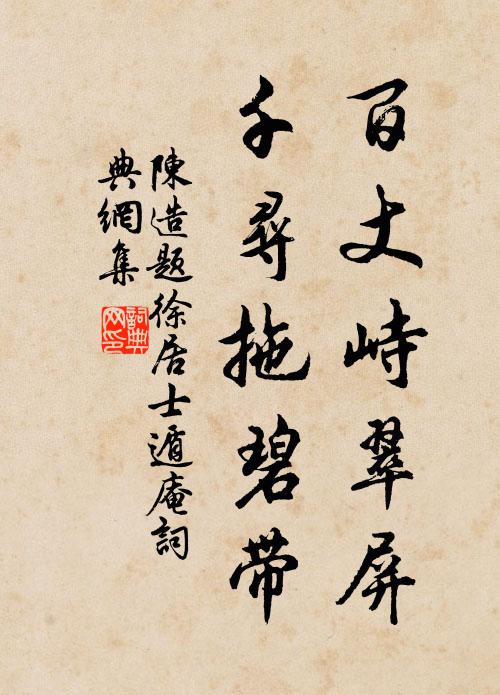 百丈峙翠屏
千尋拖碧带
陳造題徐居士遁庵詞
典網集
詞典网印